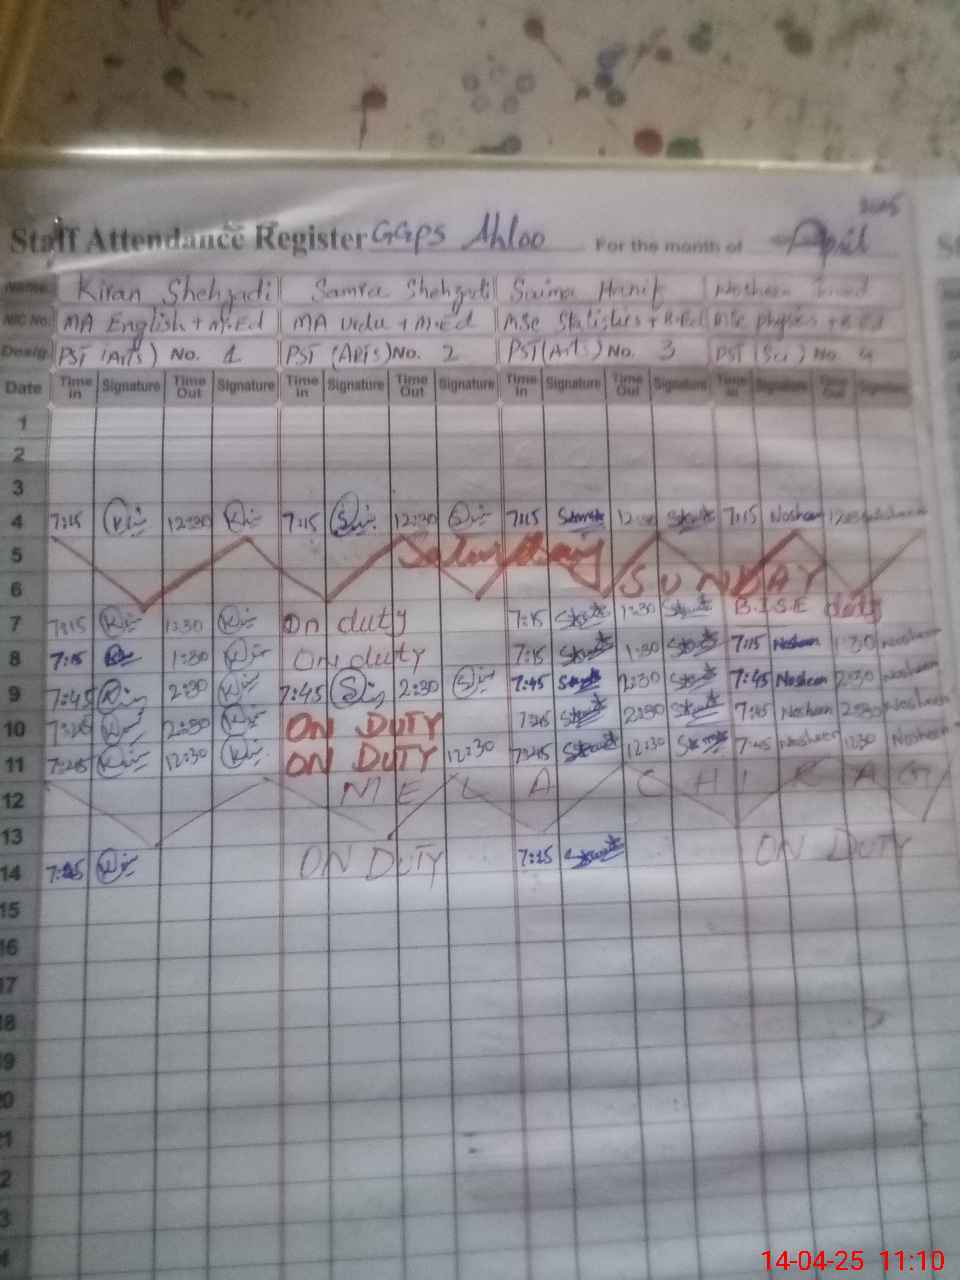 2025
Staff Attendance Register GGPS Ahloo For the month of April
Name Kiran Shehzadi Samra Shehzadi Saima Hanif Nosheen
NIC No. MA English + M.Ed MA Urdu + M.Ed MSc Statistics + B.Ed MSc physics + B.Ed
Desig. PST (Arts) No. 1 PST (ARTS) No. 2 PST (Arts) No. 3 PST (Sci) No. 4
Date Time In Signature Time Out Signature Time In Signature Time Out Signature Time In Signature Time Out Signature Time In Signature Time Out Signature
1
2
3
4 7:15 12:30 7:15 12:30 7:15 7:15 Nosheen
5 Saturday
6 SUNDAY
7 7:15 1:30 On duty 7:15 1:30 B.I.S.E duty
8 7:15 1:30 On duty 7:15 1:30 7:15 Nosheen 1:30 Nosheen
9 7:45 2:30 7:45 2:30 7:45 2:30 7:45 Nosheen 2:30 Nosheen
10 7:45 2:30 ON DUTY 7:45 2:30 7:45 Nosheen 2:30 Nosheen
11 7:45 12:30 ON DUTY 12:30 7:45 12:30 7:45 Nosheen 1230 Nosheen
12 MELA CHIRAG
13
14 7:45 ON DUTY 7:15 ON DUTY
15
16
17
18
19
20
21
2
3
4
14-04-25 11:10